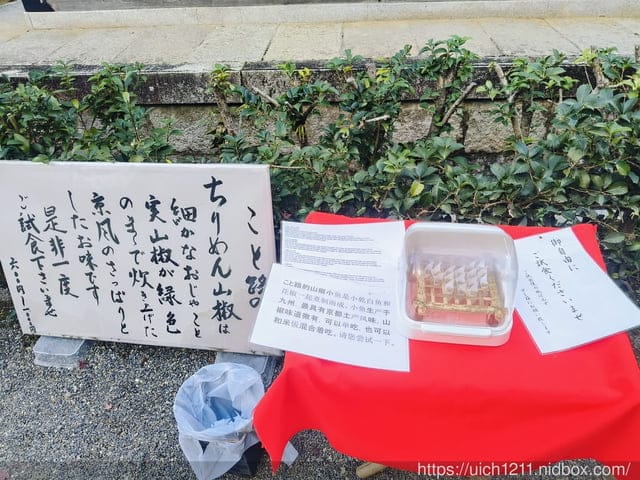 こと路の
ちりめん山椒は
細かなおじゃこと
実山椒が緑色
のままで炊き上げた
京風のさっぱりと
したお味です
是非一度
ご試食下さいませ
こと路的山椒小鱼是小乾白鱼和
庄椒一起煮制而成。小鱼生产于
九州，最具有京都土产风味。山
椒味道微有，可以单吃，也可以
和米饭混合着吃。请您尝试一下。
御自由に
ご試食くださいませ
https://uich1211.nidbox.com/